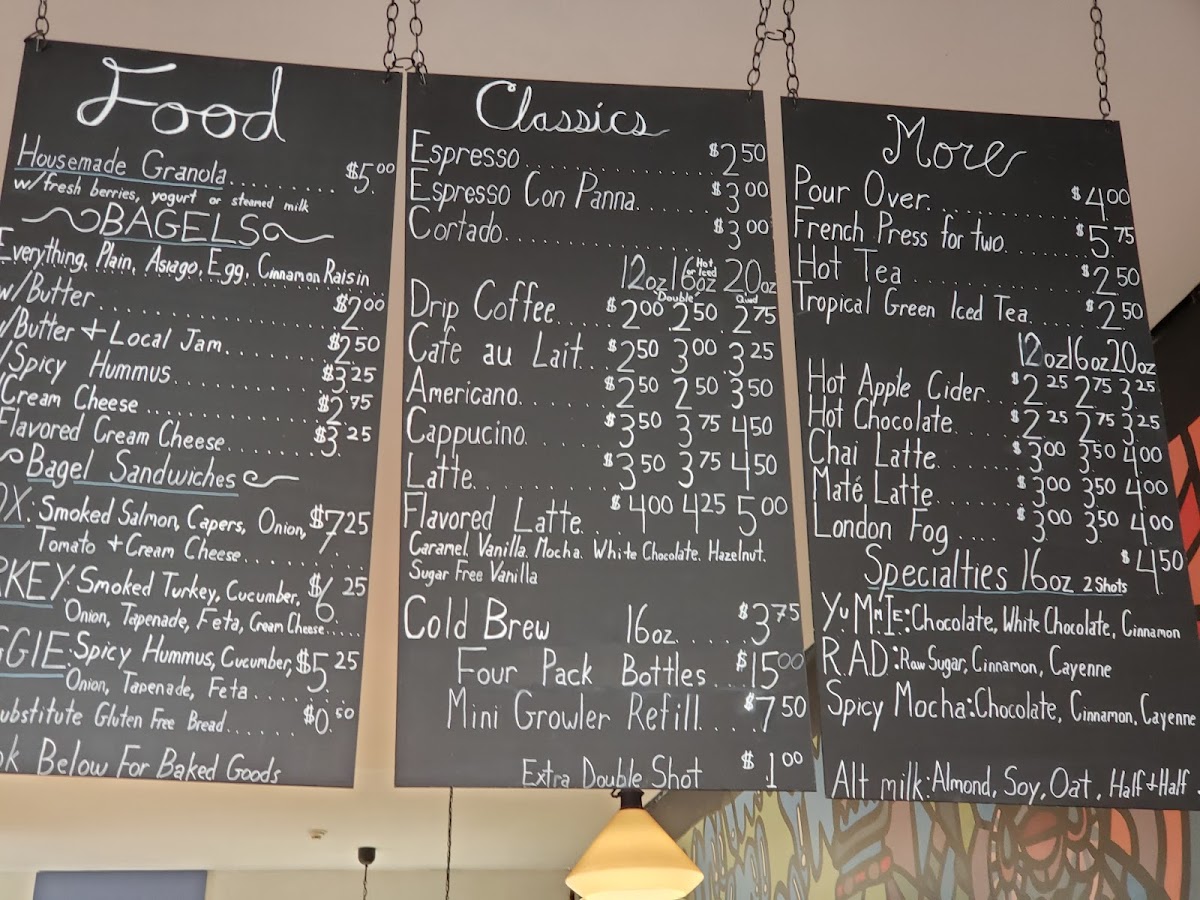 Food
Housemade Granola.......... $5.00
w/fresh berries, yogurt or steamed milk
BAGELS
Everything, Plain, Asiago, Egg, Cinnamon Raisin
w/Butter.......... $2.00
w/Butter + Local Jam.......... $2.50
/Spicy Hummus.......... $3.25
Cream Cheese.......... $2.75
Flavored Cream Cheese.......... $3.25
Bagel Sandwiches
OX: Smoked Salmon, Capers, Onion, $7.25
Tomato + Cream Cheese..........
RKEY: Smoked Turkey, Cucumber, $6.25
Onion, Tapenade, Feta, Cream Cheese.....
GGIE: Spicy Hummus, Cucumber, $5.25
Onion, Tapenade, Feta..........
ubstitute Gluten Free Bread.......... $0.50
ok Below For Baked Goods
Classics
Espresso.......... $2.50
Espresso Con Panna.......... $3.00
Cortado.......... $3.00
Hot or Iced
12oz 16oz 20oz
Double Quad
Drip Coffee..... $2.00 2.50 2.75
Cafe au Lait... $2.50 3.00 3.25
Americano..... $2.50 2.50 3.50
Cappucino..... $3.50 3.75 4.50
Latte.......... $3.50 3.75 4.50
Flavored Latte... $4.00 4.25 5.00
Caramel. Vanilla. Mocha. White Chocolate. Hazelnut.
Sugar Free Vanilla
Cold Brew 16oz...... $3.75
Four Pack Bottles.. $15.00
Mini Growler Refill.... $7.50
Extra Double Shot $1.00
More
Pour Over.......... $4.00
French Press for two....... $5.75
Hot Tea.......... $2.50
Tropical Green Iced Tea...... $2.50
12oz 16oz 20oz
Hot Apple Cider.. $2.25 2.75 3.25
Hot Chocolate.... $2.25 2.75 3.25
Chai Latte...... $3.00 3.50 4.00
Maté Latte...... $3.00 3.50 4.00
London Fog.... $3.00 3.50 4.00
Specialties 16oz 2 Shots $4.50
YuMMIE: Chocolate, White Chocolate, Cinnamon
RAD: Raw Sugar, Cinnamon, Cayenne
Spicy Mocha: Chocolate, Cinnamon, Cayenne
Alt milk: Almond, Soy, Oat, Half + Half